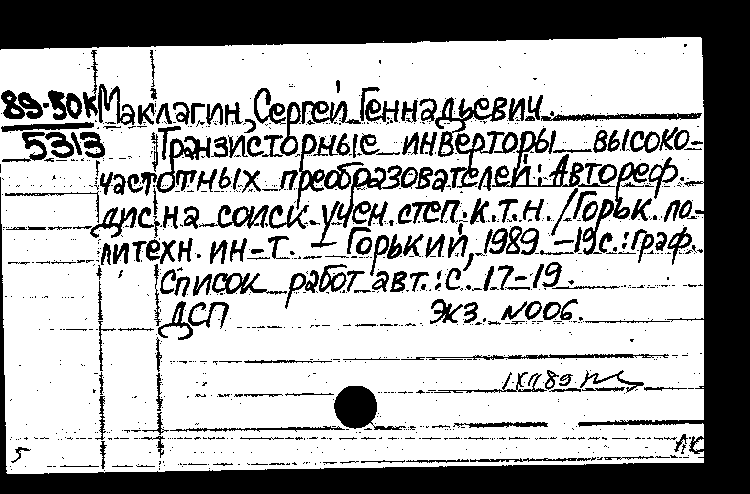 89-50к Маклагин, Сергей Геннадьевич.
5313 Транзисторные инверторы высоко-
частотных преобразователей: Автореф.
дис. на соиск. учен. степ. к.т.н. / Горьк. по-
литехн. ин-т. – Горький, 1989. – 19с.: граф.
Список работ авт.: с. 17-19.
ДСП Экз. N006.
5
ЛК